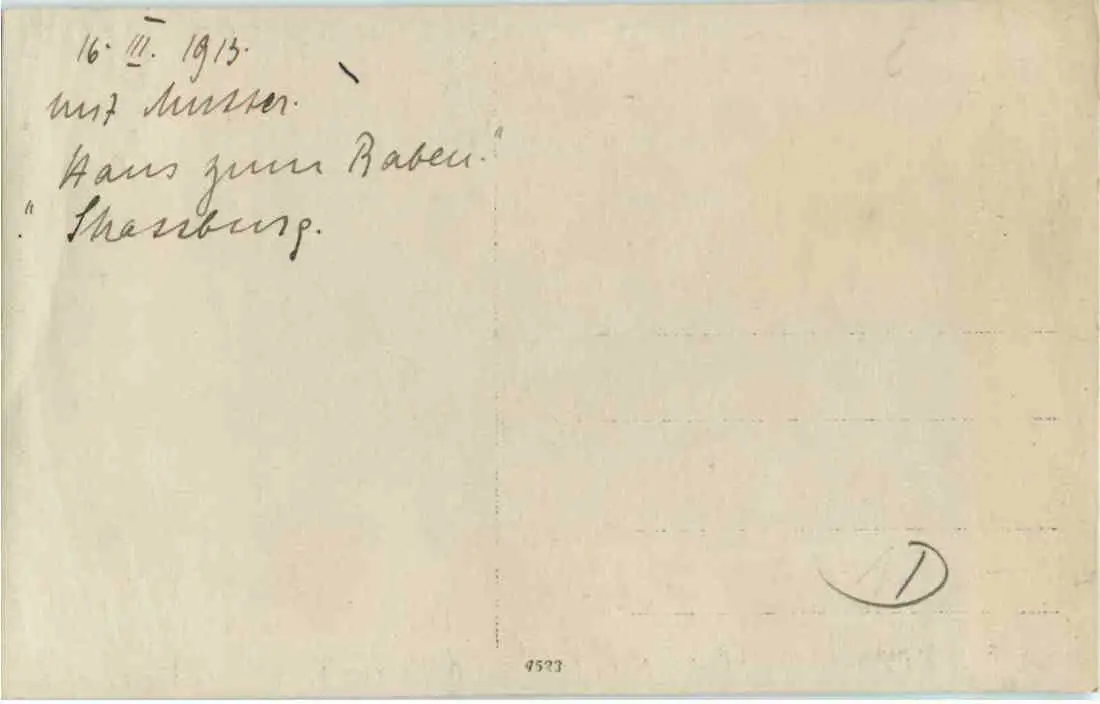 16. III. 1913.
mit Mutter.
Haus zum Raben."
" Strassburg.
D
9523